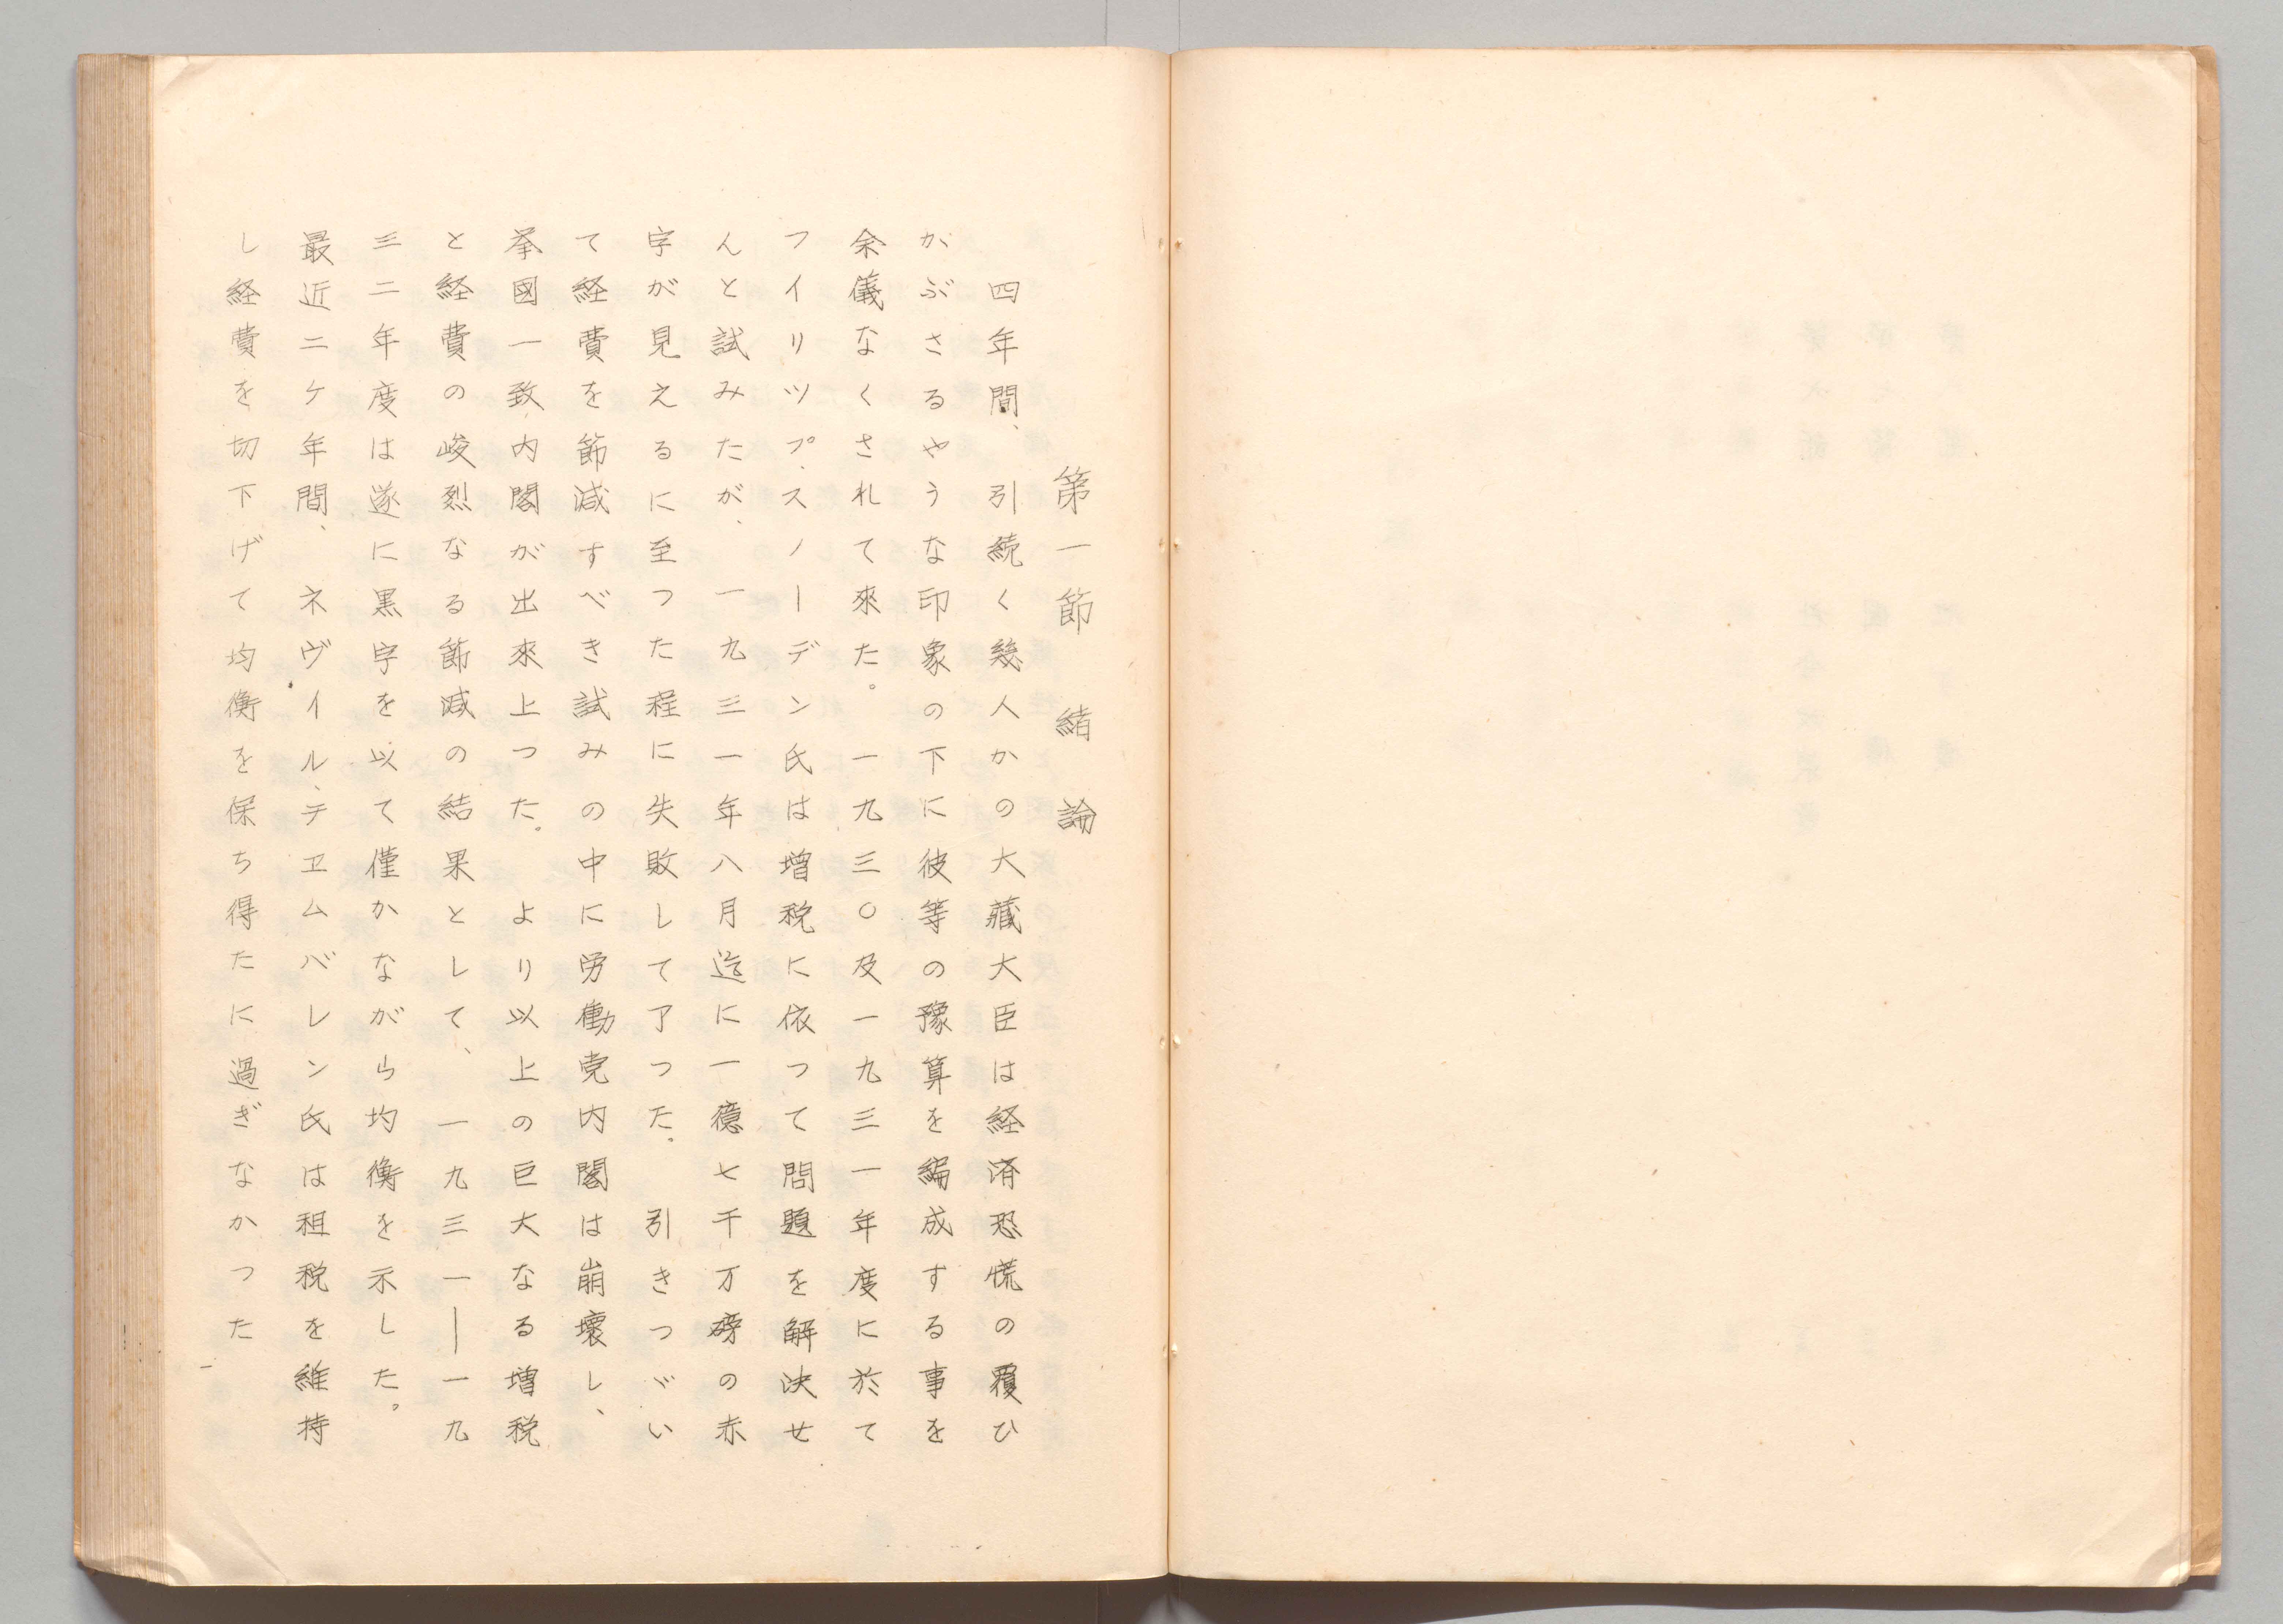 第一節　緒論
四年間、引続く幾人かの大藏大臣は経済恐慌の覆ひ
かぶさるやうな印象の下に彼等の豫算を編成する事を
余儀なくされて來た。一九三〇及一九三一年度に於て
フイリツプ、スノーデン氏は増税に依つて問題を解決せ
んと試みたが、一九三一年八月迄に一億七千万磅の赤
字が見えるに至つた程に失敗して了つた。引きつヾい
て経費を節減すべき試みの中に労働党内閣は崩壊し、
挙國一致内閣が出來上つた。より以上の巨大なる増税
と経費の峻烈なる節減の結果として、一九三一―一九
三二年度は遂に黒字を以て僅かながら均衡を示した。
最近二ケ年間、ネヴイル、チエムバレン氏は租税を維持
し経費を切下げて均衡を保ち得たに過ぎなかつた